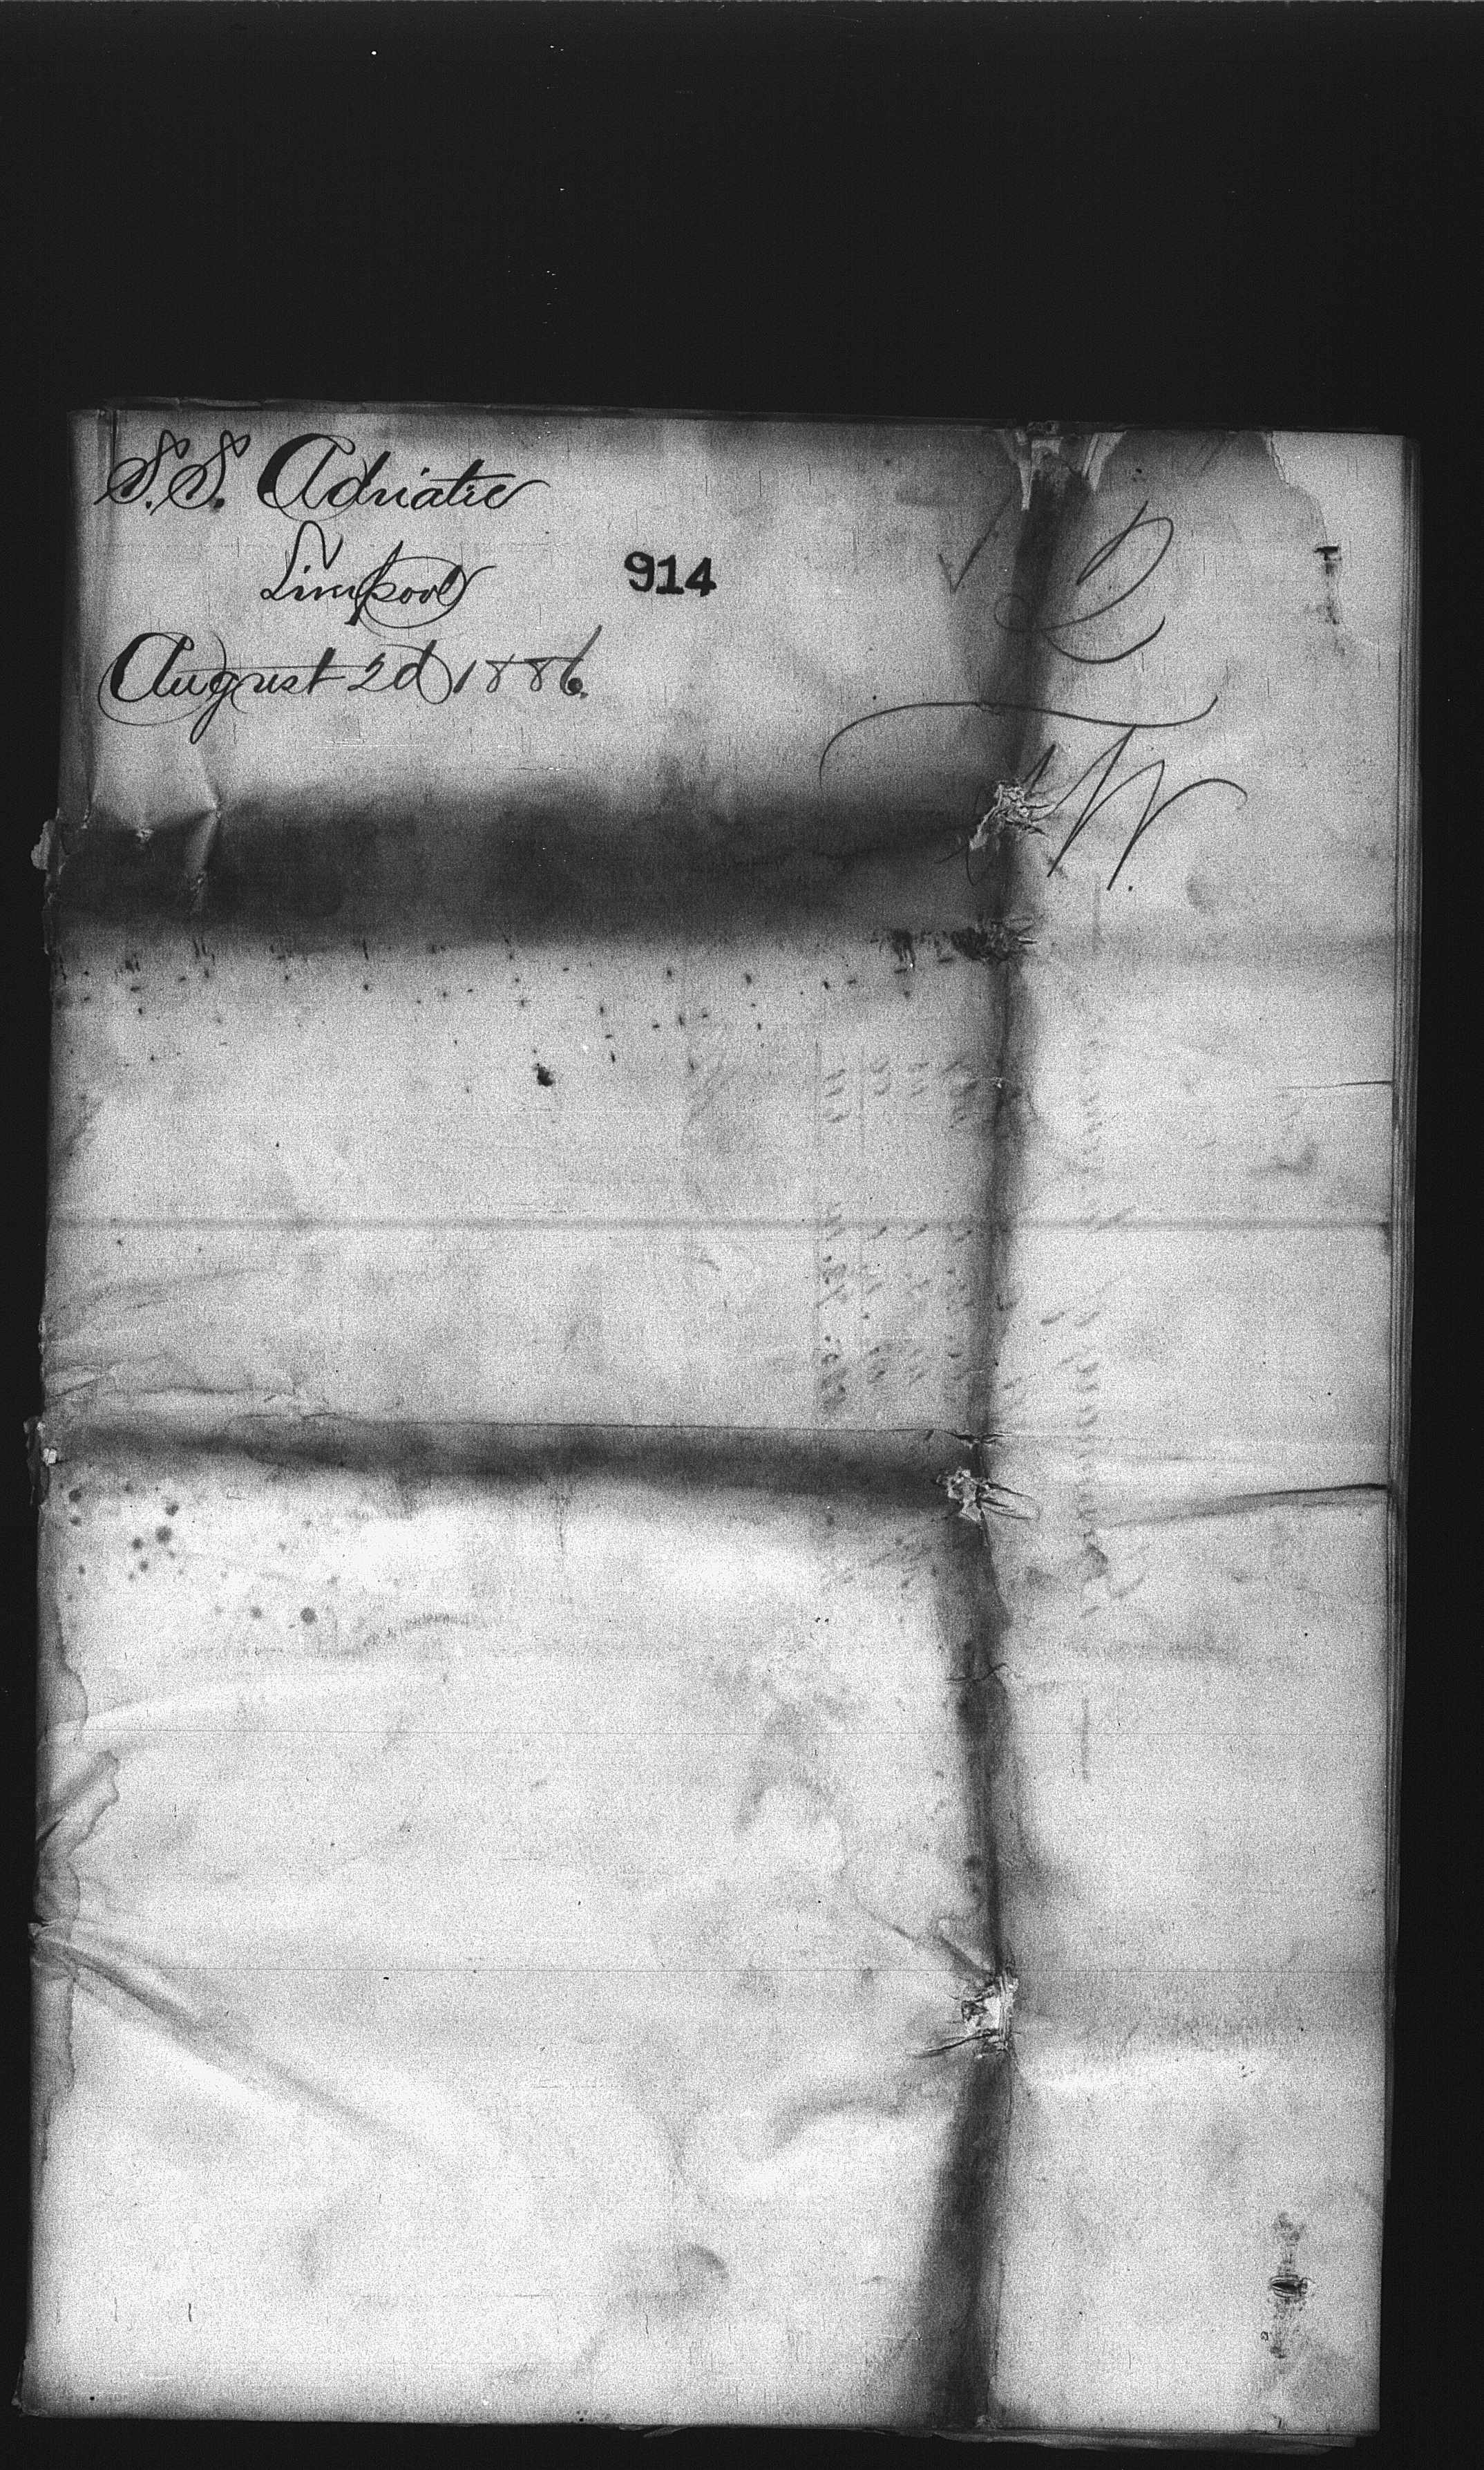 S.S. Adriatic
Liverpool
914
August 2d 1886.
W.